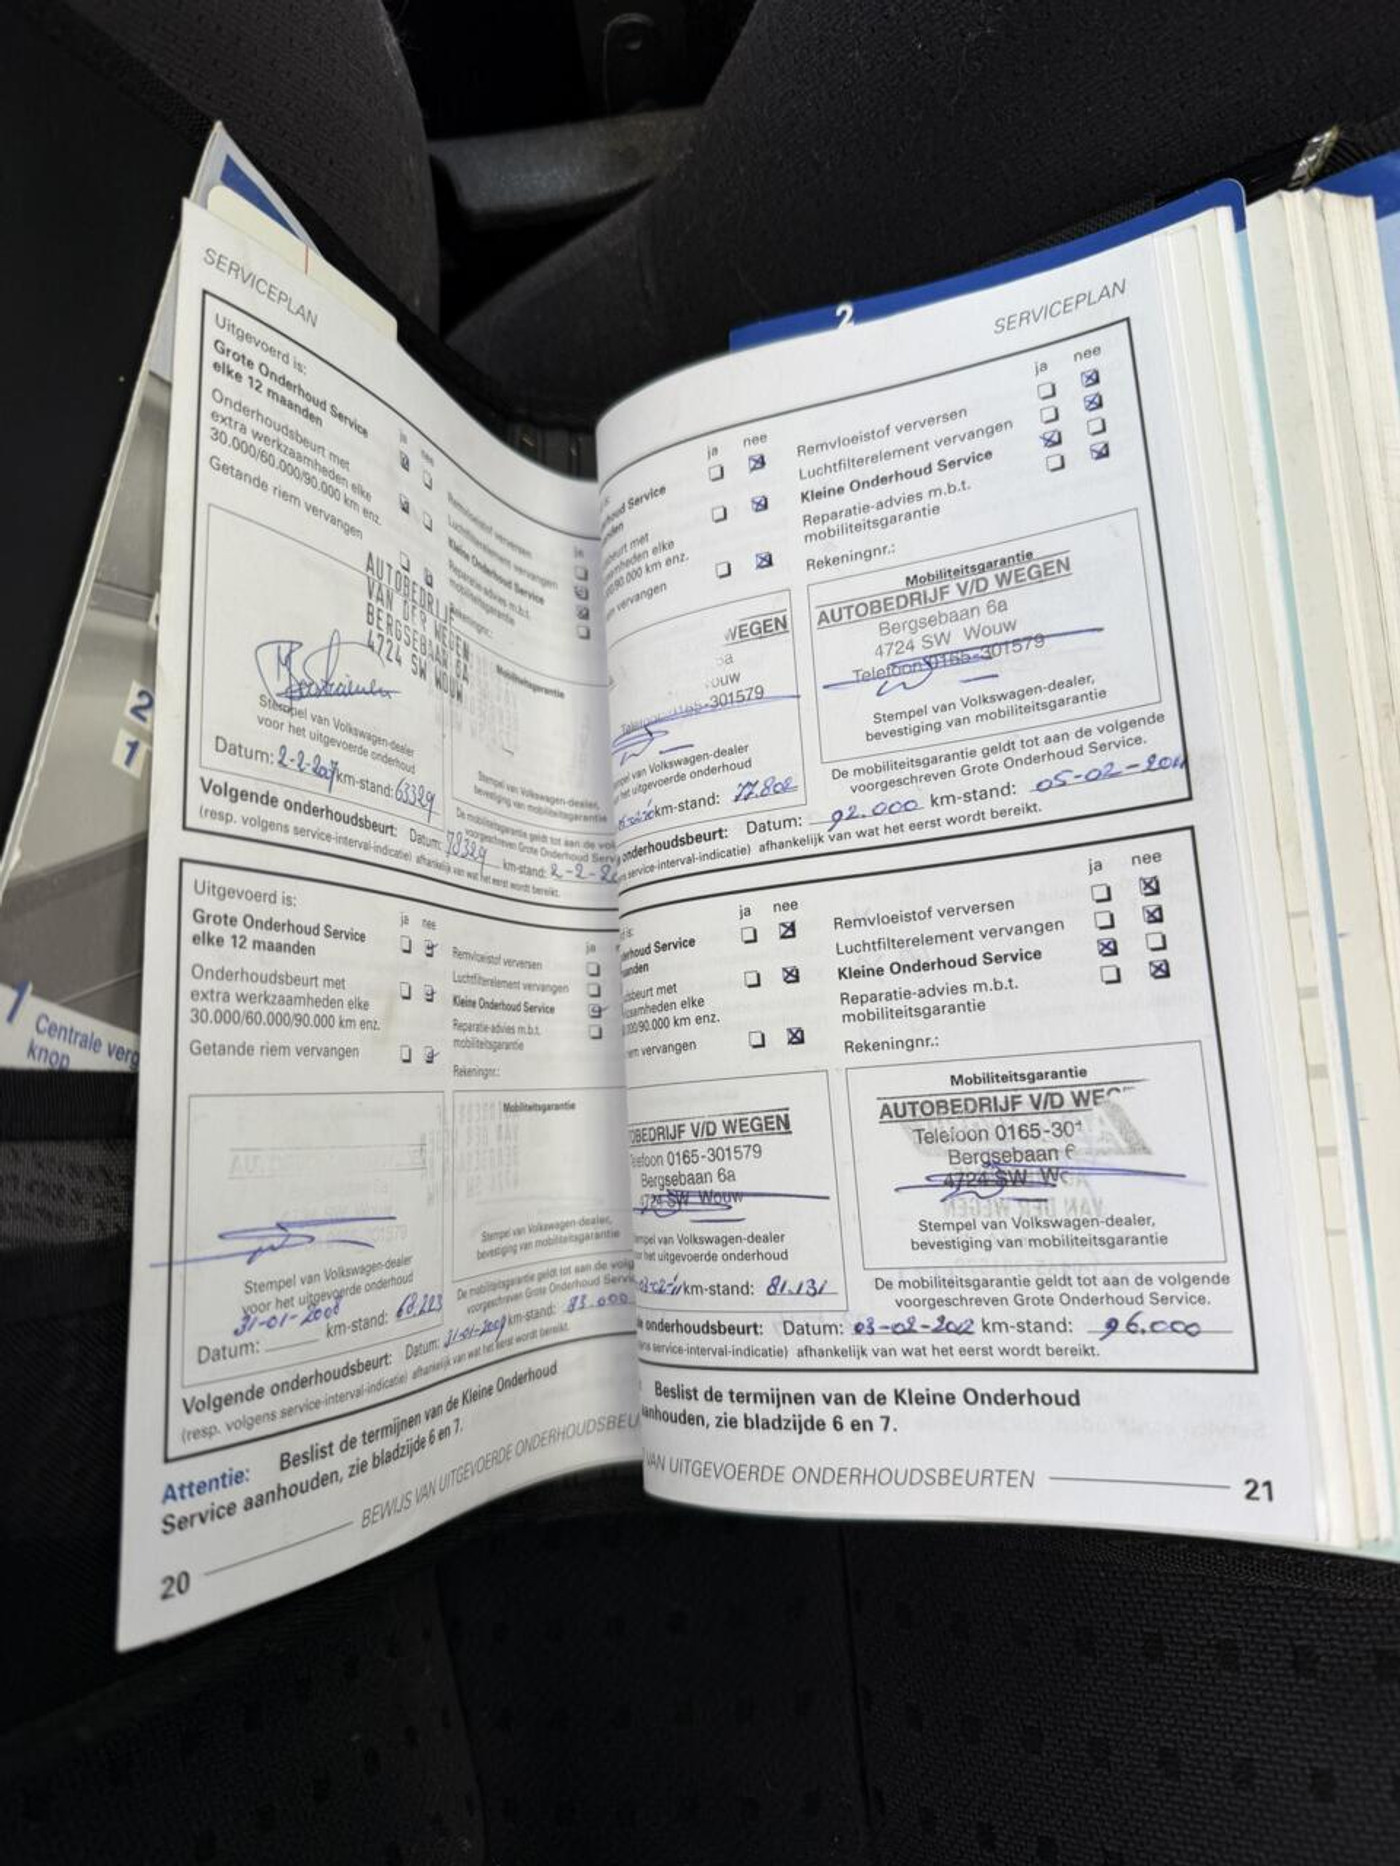 SERVICEPLAN
Uitgevoerd is:
Grote Onderhoud Service
elke 12 maanden
Onderhoudsbeurt met
extra werkzaamheden elke
30.000/60.000/90.000 km enz.
Getande riem vervangen
ja nee
Remvloeistof verversen
Luchtfilterelement vervangen
Kleine Onderhoud Service
Reparatie-advies m.b.t.
mobiliteitsgarantie
Rekeningnr.:
ja
AUTOBEDRIJF
VAN DER WEGEN
BERGSEBAAN 6A
4724 SW WOUW
Mobiliteitsgarantie
Stempel van Volkswagen-dealer
voor het uitgevoerde onderhoud
Datum: 2-2-2007 km-stand: 63329
Stempel van Volkswagen-dealer,
bevestiging van mobiliteitsgarantie
De mobiliteitsgarantie geldt tot aan de vol
voorgeschreven Grote Onderhoud Serv
Volgende onderhoudsbeurt: Datum: 78329 km-stand: 2-2-20
(resp. volgens service-interval-indicatie) afhankelijk van wat het eerst wordt bereikt.
Uitgevoerd is:
Grote Onderhoud Service
elke 12 maanden
Onderhoudsbeurt met
extra werkzaamheden elke
30.000/60.000/90.000 km enz.
Getande riem vervangen
ja nee
Remvloeistof verversen
Luchtfilterelement vervangen
Kleine Onderhoud Service
Reparatie-advies m.b.t.
mobiliteitsgarantie
Rekeningnr.:
ja
Mobiliteitsgarantie
Stempel van Volkswagen-dealer
voor het uitgevoerde onderhoud
31-01-2008
Datum: km-stand: 68.223
Stempel van Volkswagen-dealer,
bevestiging van mobiliteitsgarantie
De mobiliteitsgarantie geldt tot aan de volg
voorgeschreven Grote Onderhoud Servi
Volgende onderhoudsbeurt: Datum: 31-01-2009 km-stand: 83.000
(resp. volgens service-interval-indicatie) afhankelijk van wat het eerst wordt bereikt.
Attentie: Beslist de termijnen van de Kleine Onderhoud
Service aanhouden, zie bladzijde 6 en 7.
20 BEWIJS VAN UITGEVOERDE ONDERHOUDSBEU
2
1
1 Centrale verg
knop
2
SERVICEPLAN
ja nee
houd Service
beurt met
mheden elke
90.000 km enz.
vervangen
ja nee
Remvloeistof verversen
Luchtfilterelement vervangen
Kleine Onderhoud Service
Reparatie-advies m.b.t.
mobiliteitsgarantie
Rekeningnr.:
WEGEN
ouw
301579
pel van Volkswagen-dealer
het uitgevoerde onderhoud
km-stand: 77.802
Mobiliteitsgarantie
AUTOBEDRIJF V/D WEGEN
Bergsebaan 6a
4724 SW Wouw
Telefoon 0165-301579
Stempel van Volkswagen-dealer,
bevestiging van mobiliteitsgarantie
De mobiliteitsgarantie geldt tot aan de volgende
voorgeschreven Grote Onderhoud Service.
onderhoudsbeurt: Datum: 92.000 km-stand: 05-02-2011
service-interval-indicatie) afhankelijk van wat het eerst wordt bereikt.
ja nee
erhoud Service
anden
sbeurt met
zaamheden elke
000/90.000 km enz.
em vervangen
ja nee
Remvloeistof verversen
Luchtfilterelement vervangen
Kleine Onderhoud Service
Reparatie-advies m.b.t.
mobiliteitsgarantie
Rekeningnr.:
OBEDRIJF V/D WEGEN
elefoon 0165-301579
Bergsebaan 6a
4724 SW Wouw
empel van Volkswagen-dealer
or het uitgevoerde onderhoud
03-02-11 km-stand: 81.131
Mobiliteitsgarantie
AUTOBEDRIJF V/D WEG
Telefoon 0165-301
Bergsebaan 6
4724 SW Wo
Stempel van Volkswagen-dealer,
bevestiging van mobiliteitsgarantie
De mobiliteitsgarantie geldt tot aan de volgende
voorgeschreven Grote Onderhoud Service.
onderhoudsbeurt: Datum: 03-02-2012 km-stand: 96.000
service-interval-indicatie) afhankelijk van wat het eerst wordt bereikt.
Beslist de termijnen van de Kleine Onderhoud
anhouden, zie bladzijde 6 en 7.
VAN UITGEVOERDE ONDERHOUDSBEURTEN 21